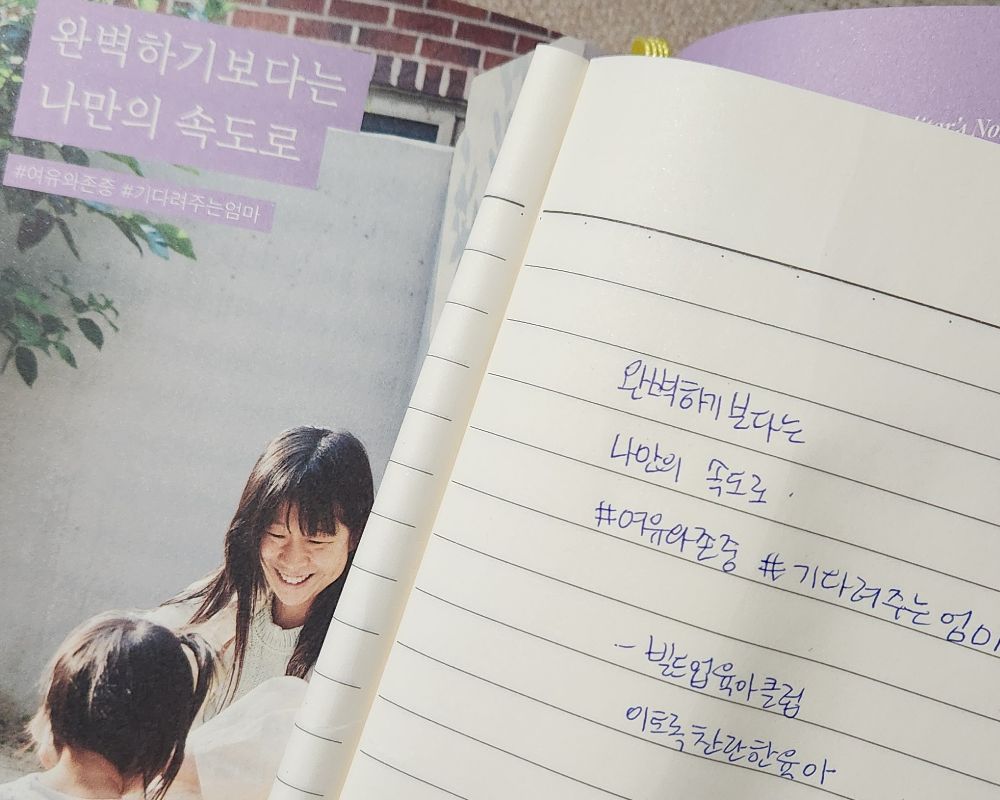 완벽하기보다는
나만의 속도로
#여유와존중 #기다려주는엄마
Editor's No
완벽하기보다는
나만의 속도로.
#여유와존중 #기다려주는엄마
- 빌드업육아클럽
이토록찬란한육아